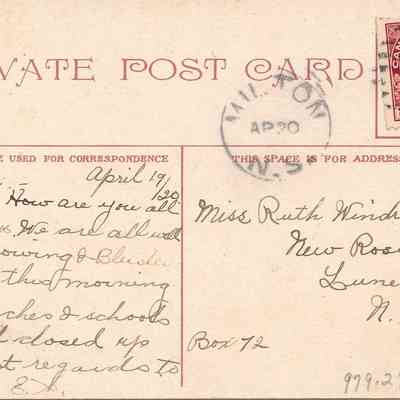 VATE POST CARD
CAN
MILTON
AP 20
N.S.
E USED FOR CORRESPONDENCE
THIS SPACE IS FOR ADDRES
April 19/20
How are you all
We are all well
owing &
this morning
ches & schools
closed up
t regards to
Miss Ruth Windr
New Ross
Lune
N.
Box 72
979.2